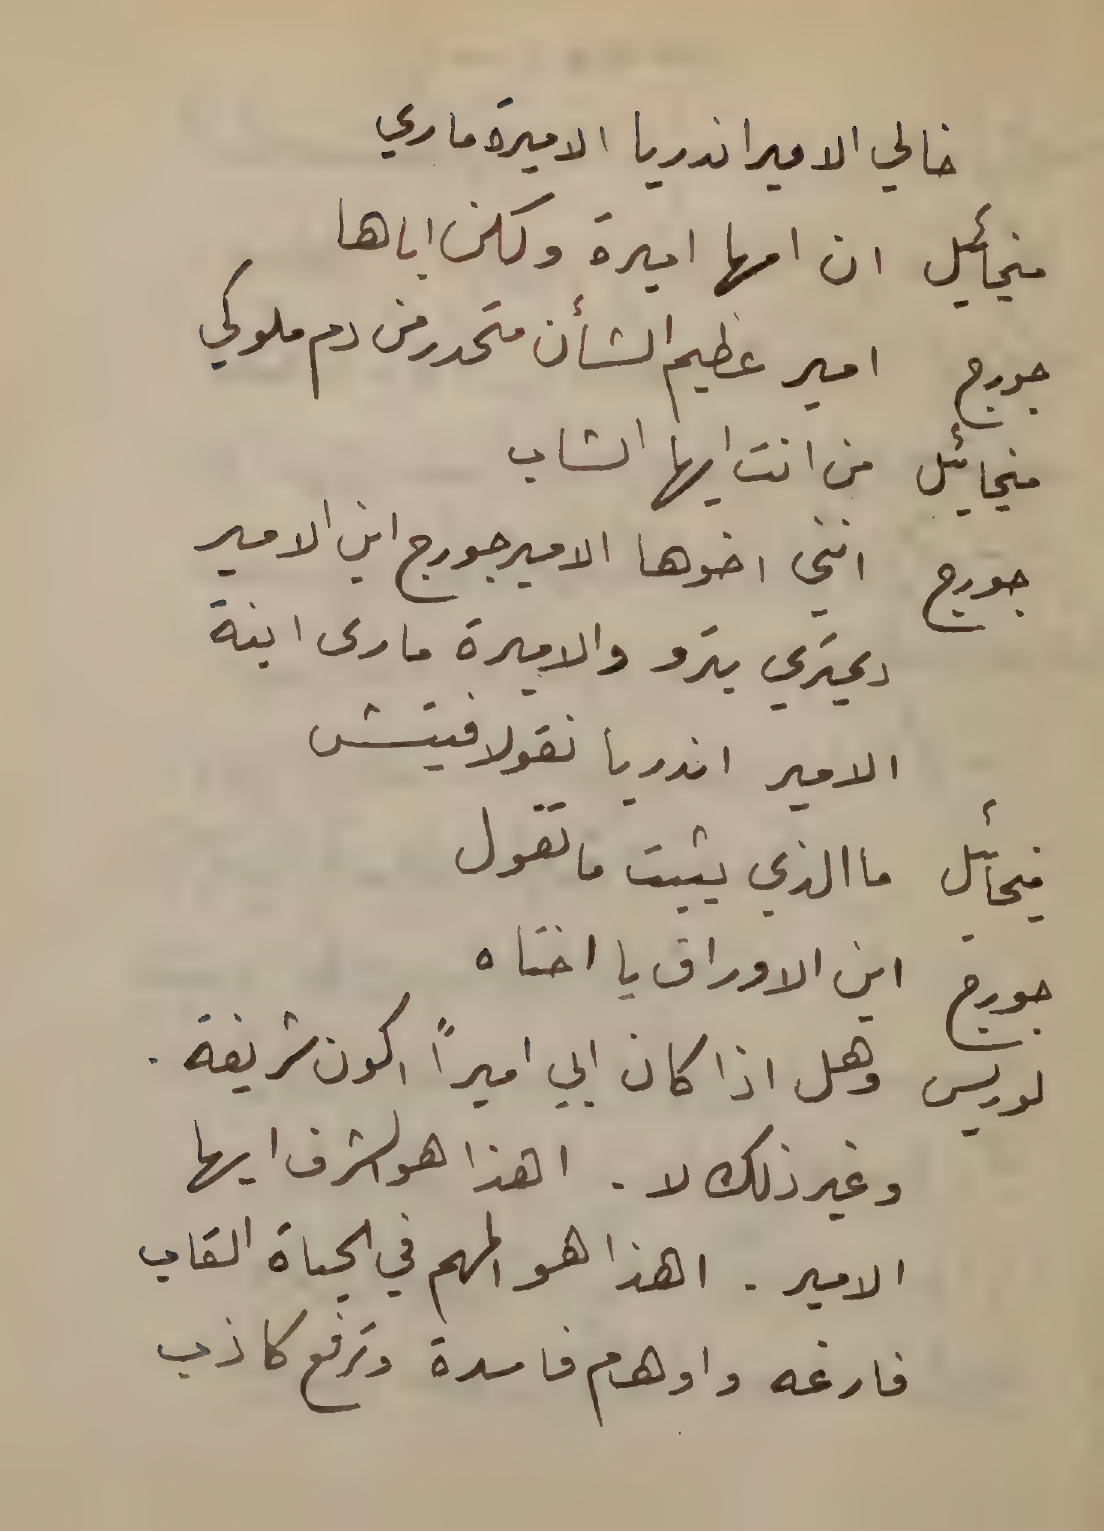 خالي الامير اندريا الاميرة ماري
ميخائيل ان امها اميرة ولكن اباها
جورج امير عظيم الشأن متحدر من دم ملوكي
ميخائيل من انت ايها الشاب
جورج انني اخوها الامير جورج ابن الامير
ديميتري بترو والاميرة ماري ابنة
الامير اندريا نقولافيتش
ميخائيل ما الذي يثبت ما تقول
جورج اين الاوراق يا اختاه
لوريس وهل اذا كان ابي اميراً اكون شريفة .
وغير ذلك لا . اهذا هو الشرف ايها
الامير . اهذا هو المهم في الحياة القاب
فارغه واوهام فاسدة وترفع كاذب